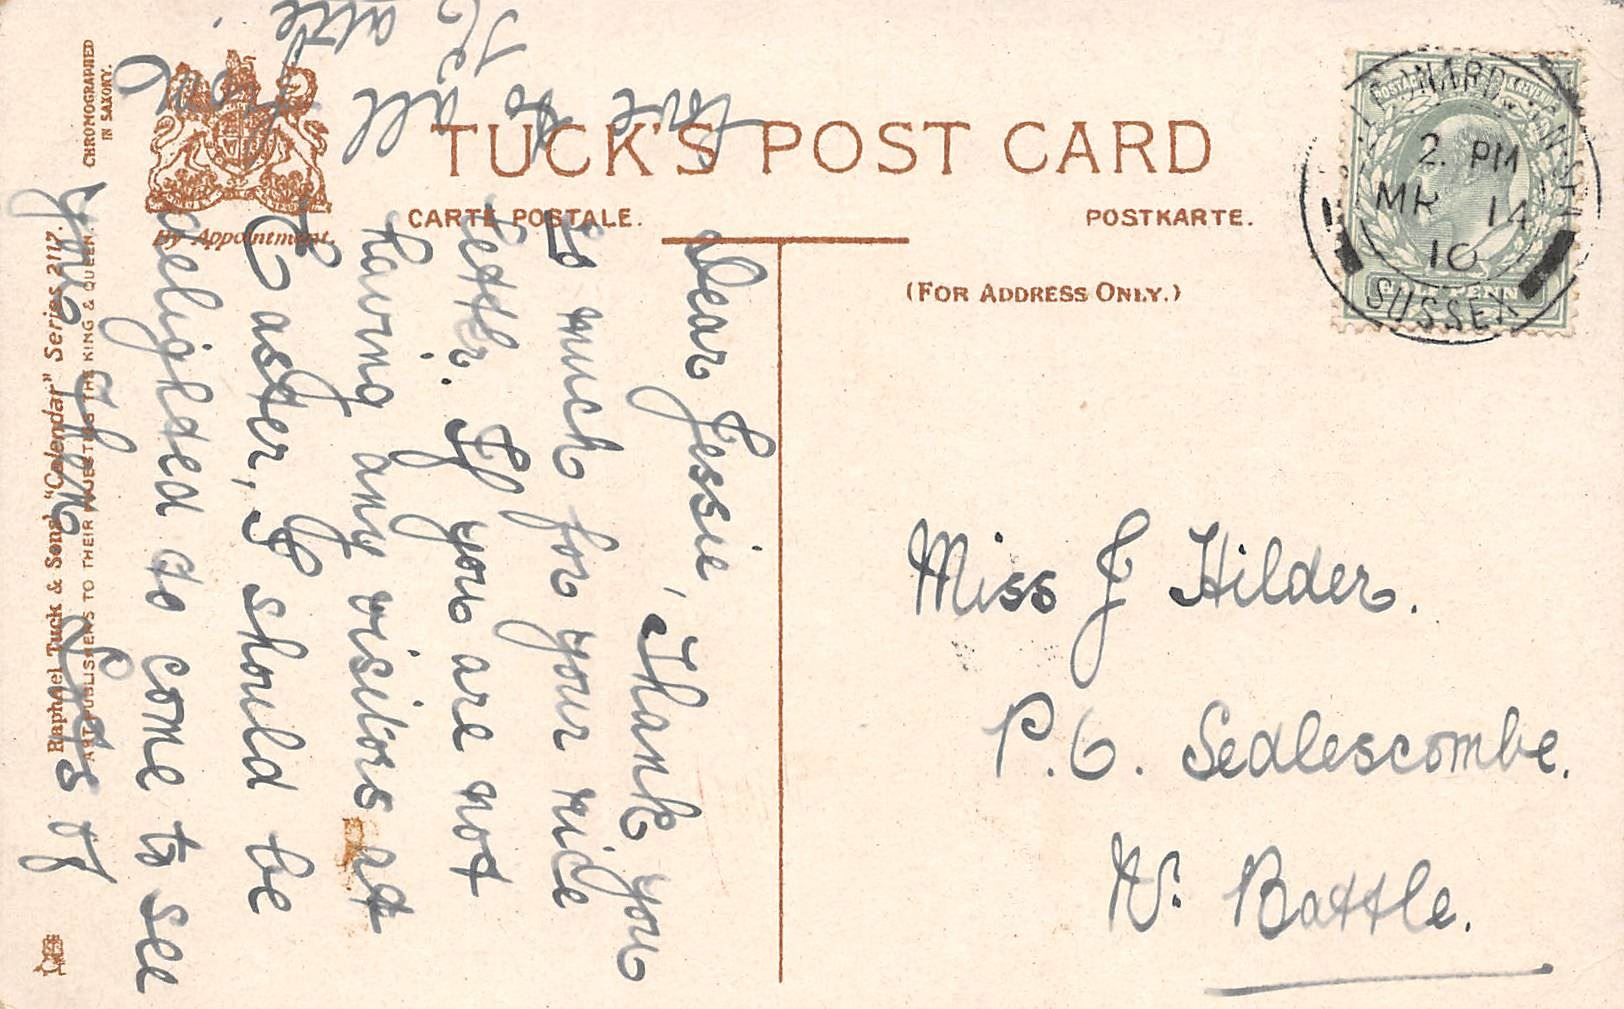 TUCK'S POST CARD
CARTE POSTALE.
POSTKARTE.
(FOR ADDRESS ONLY.)
By Appointment.
CHROMOGRAPHED
IN SAXONY.
Raphael Tuck & Sons' "Calendar" Series 2117.
ART PUBLISHERS TO THEIR MAJESTIES THE KING & QUEEN.
Dear Jessie,
Thank you
so much for your nice
letter. If you are not
having any visitors at
Easter, I should be
delighted to come to see
you then. Lots of
love
to
all
Miss J Hilder.
P.O. Sedlescombe.
Nr. Battle.
LEONARDS-ON-SEA
2. PM
MR 14
10
SUSSEX
POSTAGE & REVENUE
HALFPENNY